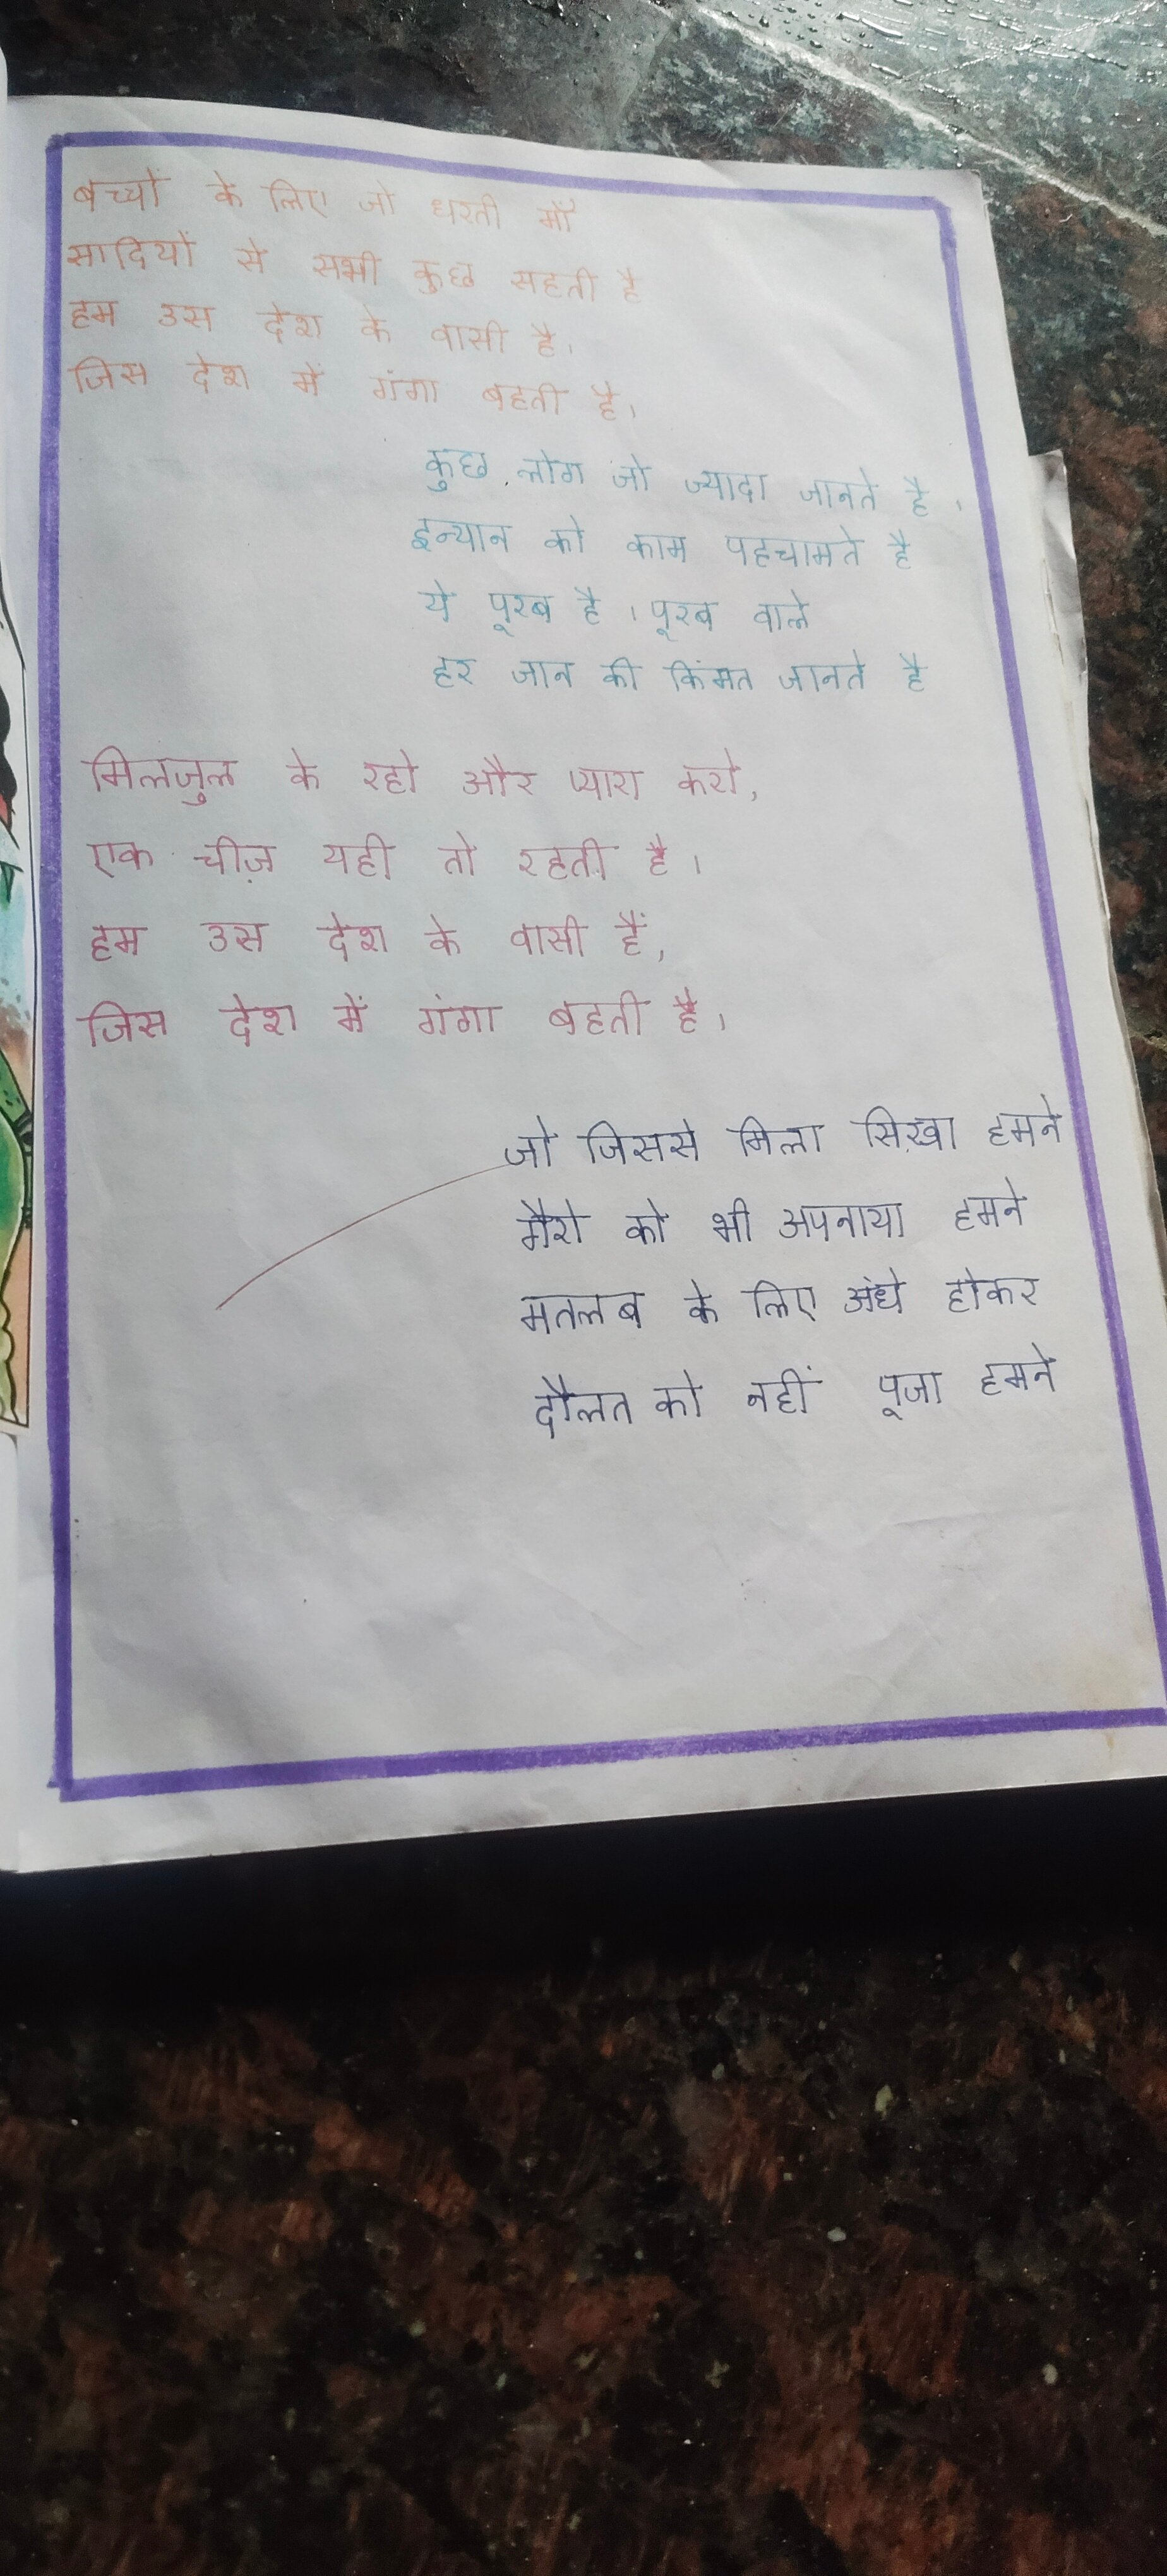 बच्चों के लिए जो धरती माँ
सादियों से सभी कुछ सहती है
हम उस देश के वासी है,
जिस देश में गंगा बहती है।
कुछ लोग जो ज्यादा जानते है ।
इन्यान को काम पहचामते है
ये पूरब है । पूरब वाले
हर जान की किंमत जानते है
मिलजुल के रहो और प्यारा करो,
एक चीज़ यही तो रहती है ।
हम उस देश के वासी हैं,
जिस देश में गंगा बहती है।
जो जिससे मिला सिख़ा हमने
गैरो को भी अपनाया हमने
मतलब के लिए अंधे होकर
दौलत को नहीं पूजा हमने